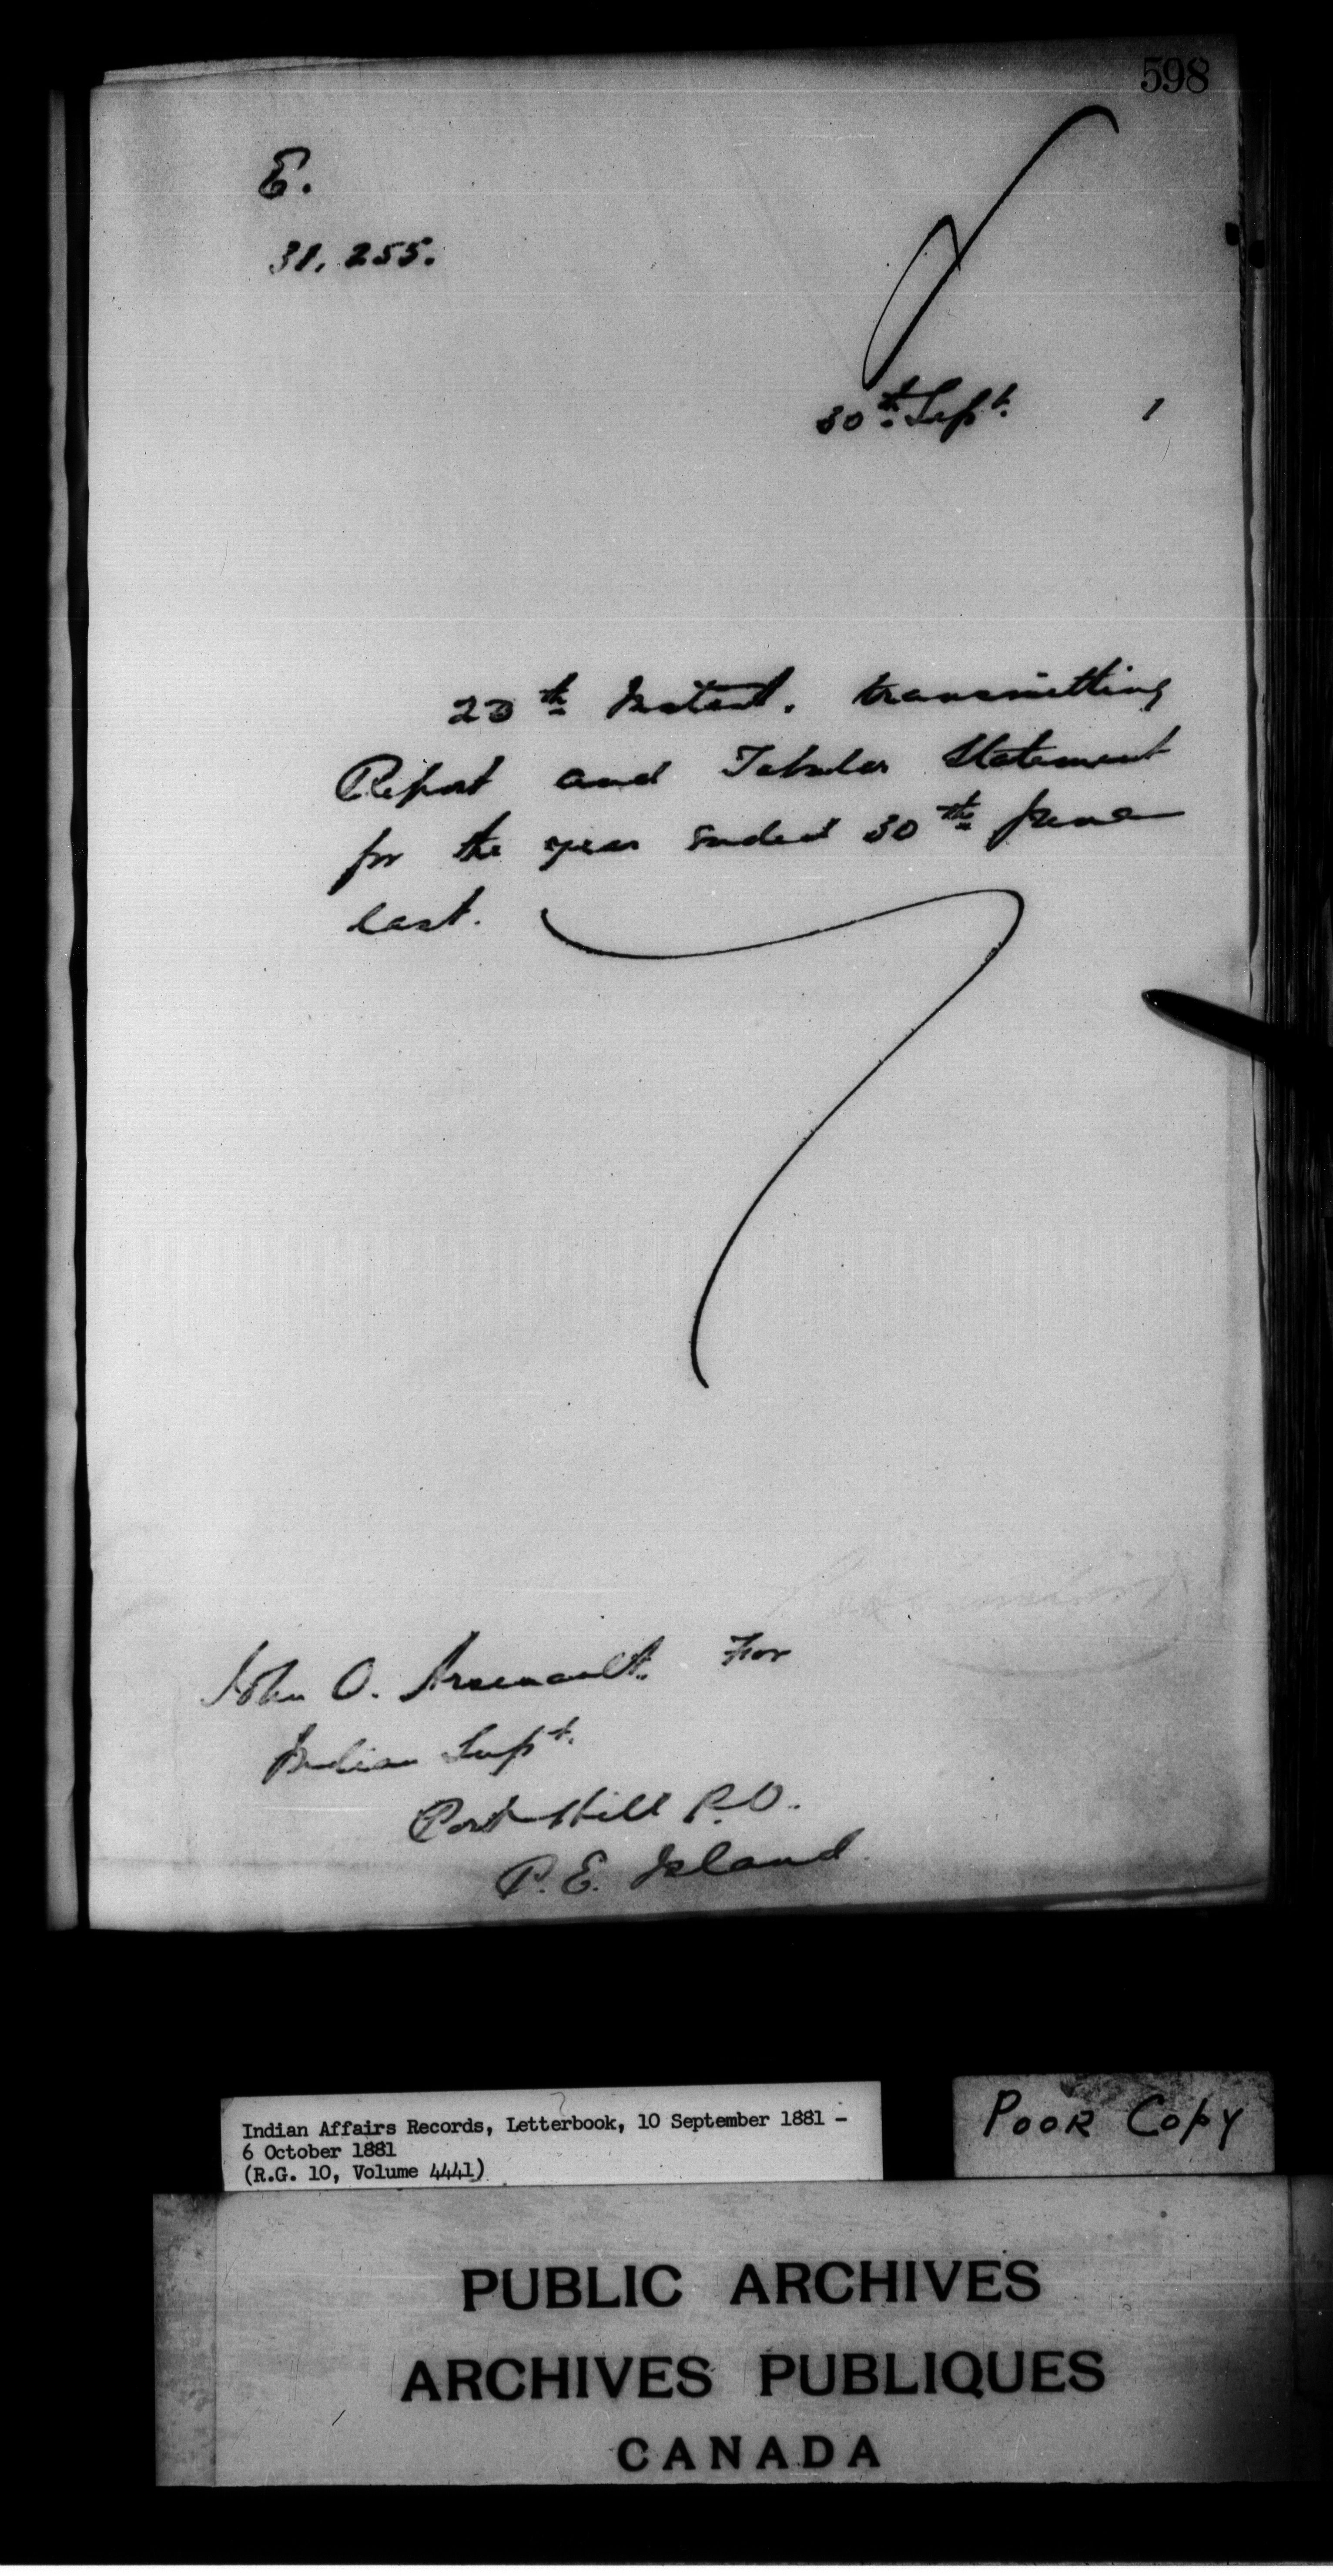 598
E.
31,255.
30th Sept. 1
23th Instant. transmitting
Report and Tabular Statement
for the year ended 30th June
last.
John O. Arsenault. For
Indian Supt.
Port Hill P.O.
P.E. Island.
Indian Affairs Records, Letterbook, 10 September 1881 -
6 October 1881
(R.G. 10, Volume 4441)
POOR COPY
PUBLIC ARCHIVES
ARCHIVES PUBLIQUES
CANADA